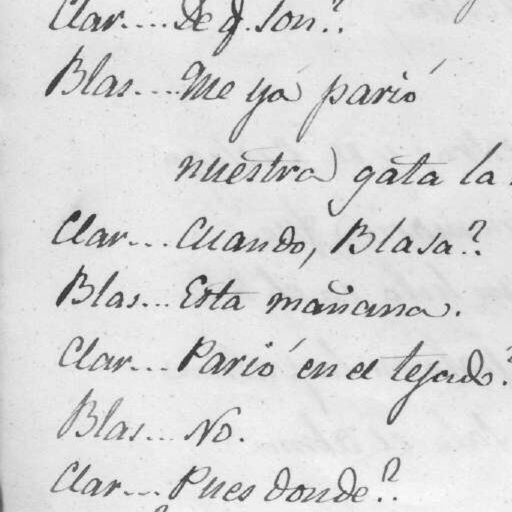 Clar.... De q. son?
Blas.... Me yá parió
nuestra gata la
Clar... Cuando, Blasa?
Blas... Esta mañana.
Clar... Parió en el tejado?
Blas... No.
Clar... Pues donde?